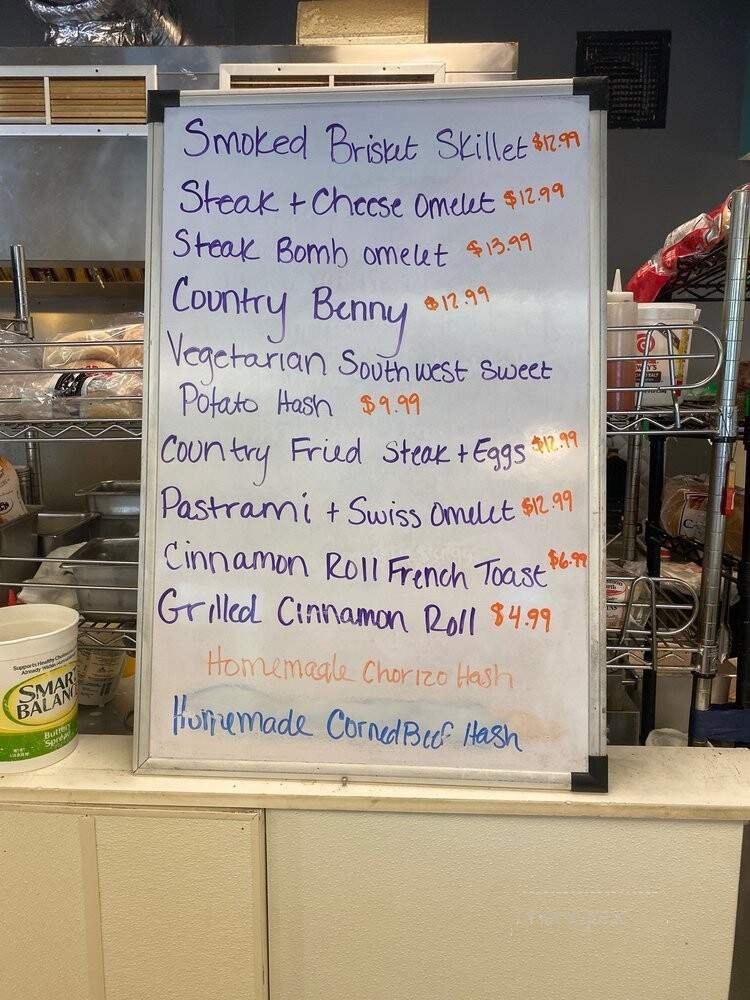 Smoked Brisket Skillet $12.99
Steak + Cheese Omelet $12.99
Steak Bomb omelet $13.99
Country Benny $12.99
Vegetarian Southwest Sweet
Potato Hash $9.99
Country Fried Steak + Eggs $12.99
Pastrami + Swiss Omelet $12.99
Cinnamon Roll French Toast $6.99
Grilled Cinnamon Roll $4.99
Homemade Chorizo Hash
Homemade Corned Beef Hash
Supports Healthy
Already Within
SMAR
BALAN
Butter
Spre